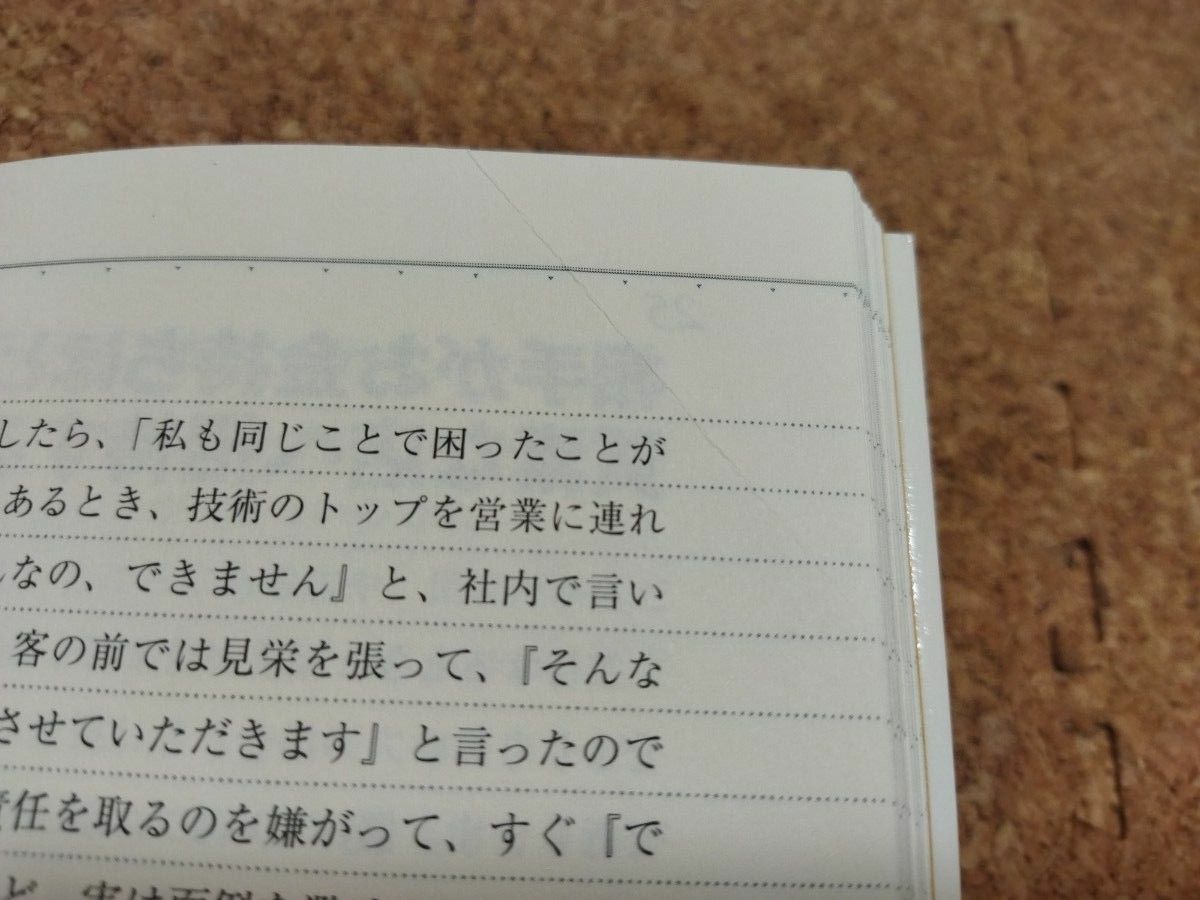 したら、「私も同じことで困ったことが
あるとき、技術のトップを営業に連れ
なの、できません』と、社内で言い
客の前では見栄を張って、『そんな
させていただきます』と言ったので
責任を取るのを嫌がって、すぐ『で